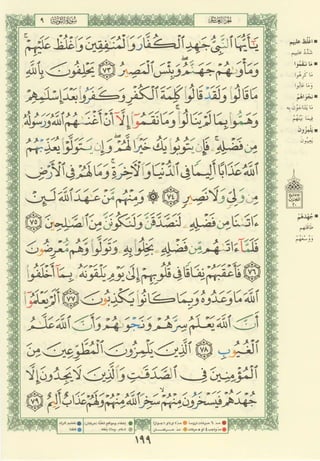 سورة التوبة ٩
الجزء العاشر
يَٰٓأَيُّهَا ٱلنَّبِيُّ جَٰهِدِ ٱلْكُفَّارَ وَٱلْمُنَٰفِقِينَ وَٱغْلُظْ عَلَيْهِمْ ۚ
وَمَأْوَىٰهُمْ جَهَنَّمُ ۖ وَبِئْسَ ٱلْمَصِيرُ ﴿٧٣﴾ يَحْلِفُونَ بِٱللَّهِ
مَا قَالُوا۟ وَلَقَدْ قَالُوا۟ كَلِمَةَ ٱلْكُفْرِ وَكَفَرُوا۟ بَعْدَ إِسْلَٰمِهِمْ
وَهَمُّوا۟ بِمَا لَمْ يَنَالُوا۟ ۚ وَمَا نَقَمُوٓا۟ إِلَّآ أَنْ أَغْنَىٰهُمُ ٱللَّهُ وَرَسُولُهُۥ
مِن فَضْلِهِۦ ۚ فَإِن يَتُوبُوا۟ يَكُ خَيْرًا لَّهُمْ ۖ وَإِن يَتَوَلَّوْا۟ يُعَذِّبْهُمُ
ٱللَّهُ عَذَابًا أَلِيمًا فِى ٱلدُّنْيَا وَٱلْءَاخِرَةِ ۚ وَمَا لَهُمْ فِى ٱلْأَرْضِ
مِن وَلِىٍّ وَلَا نَصِيرٍ ﴿٧٤﴾ ۞ وَمِنْهُم مَّنْ عَٰهَدَ ٱللَّهَ لَئِنْ
ءَاتَىٰنَا مِن فَضْلِهِۦ لَنَصَّدَّقَنَّ وَلَنَكُونَنَّ مِنَ ٱلصَّٰلِحِينَ ﴿٧٥﴾
فَلَمَّآ ءَاتَىٰهُم مِّن فَضْلِهِۦ بَخِلُوا۟ بِهِۦ وَتَوَلَّوا۟ وَّهُم مُّعْرِضُونَ
﴿٧٦﴾ فَأَعْقَبَهُمْ نِفَاقًا فِى قُلُوبِهِمْ إِلَىٰ يَوْمِ يَلْقَوْنَهُۥ بِمَآ أَخْلَفُوا۟
ٱللَّهَ مَا وَعَدُوهُ وَبِمَا كَانُوا۟ يَكْذِبُونَ ﴿٧٧﴾ أَلَمْ يَعْلَمُوٓا۟
أَنَّ ٱللَّهَ يَعْلَمُ سِرَّهُمْ وَنَجْوَىٰهُمْ وَأَنَّ ٱللَّهَ عَلَّٰمُ
ٱلْغُيُوبِ ﴿٧٨﴾ ٱلَّذِينَ يَلْمِزُونَ ٱلْمُطَّوِّعِينَ مِنَ
ٱلْمُؤْمِنِينَ فِى ٱلصَّدَقَٰتِ وَٱلَّذِينَ لَا يَجِدُونَ إِلَّا
جُهْدَهُمْ فَيَسْخَرُونَ مِنْهُمْ ۙ سَخِرَ ٱللَّهُ مِنْهُمْ وَلَهُمْ عَذَابٌ أَلِيمٌ ﴿٧٩﴾
اغلظ عليهم
ما نقموا
نجواهم
يلمزون
جهدهم
١٩٩